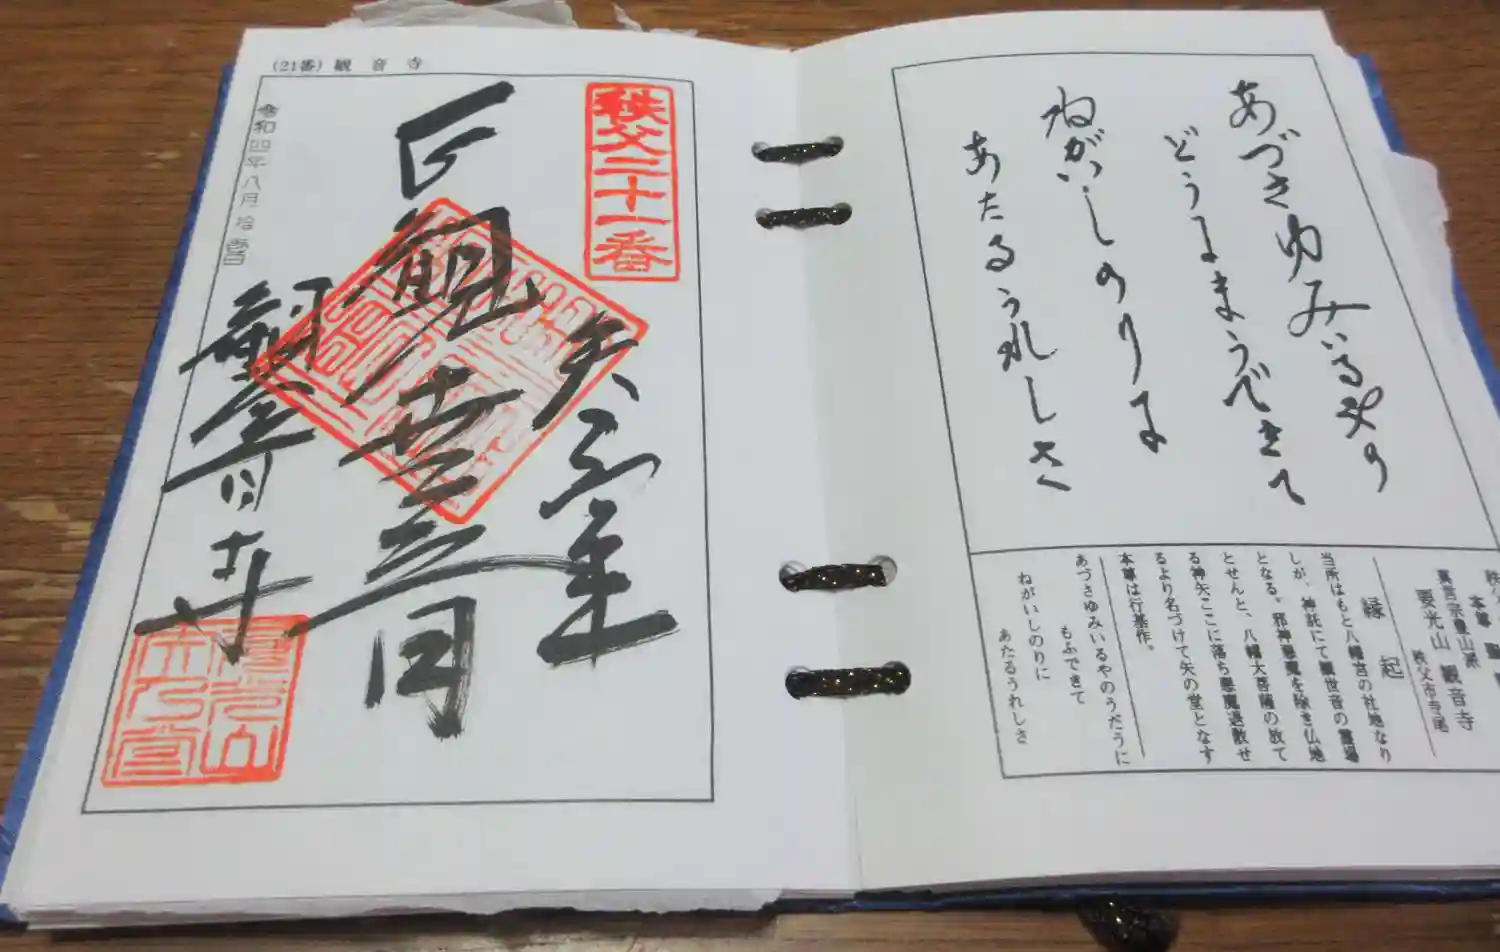 あづさゆみいるやの
どうにまうできて
ねがいしのりに
あたるうれしさ
本尊 聖
真言宗豊山派
要光山 観音寺
秩父市寺尾
縁起
当所はもと八幡宮の社地なり
しが、神託にて観世音の霊場
となる。邪神悪魔を除き仏地
とせんと、八幡大菩薩の放て
る神矢ここに落ち悪魔退散せ
るより名づけて矢の堂となす
本尊は行基作。
あづさゆみいるやのうだうに
もふできて
ねがいしのりに
あたるうれしさ
(21番) 観音寺
秩父二十一番
矢之堂
正観世音
観音寺
令和四年八月拾